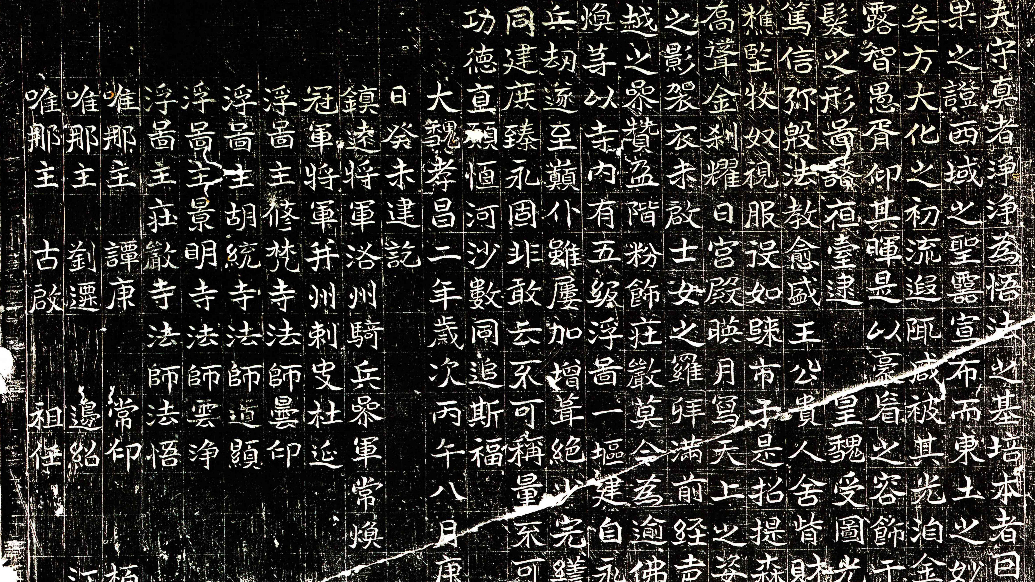 夫守真者浄浄為悟法之基培本者曰
果之證西域之聖靈宣布而東土之妙
矣方大化之初流遐陬咸被其光洎金
露智愚胥仰其暉是以豪眉之容飾于
髮之形啚諸宿臺逮皇魏受圖
篤信弥殷法教愈盛王公貴人舍皆財
樵竪牧奴視服设如睞市于是招提森
高聳金刹耀日宮殿暎月寫天上之姿
之影袈衣赤啟士女之羅拜满前經声
越之㕘贊盃階粉飾荘嚴莫今為逾佛
煥等以寺内有五级浮啚一塸建自永
兵劫遂至顛仆雖屢加增葺絕少完繕
同建庶臻永固非敢去不可稱量不可
功德直願恒河沙數同追斯福
大魏孝昌二年歲次丙午八月庚
日癸未建訖
鎮遠將軍洛州騎兵㕘軍常煥
冠軍將軍并州刺史杜延
浮啚主修梵寺法師曇印
浮啚主胡統寺法師道顯
浮啚主景明寺法師雲浄
浮啚主荘嚴寺法師法悟
唯那主譚康常仰
唯那主劉遷邊紹
唯那主古啟祖